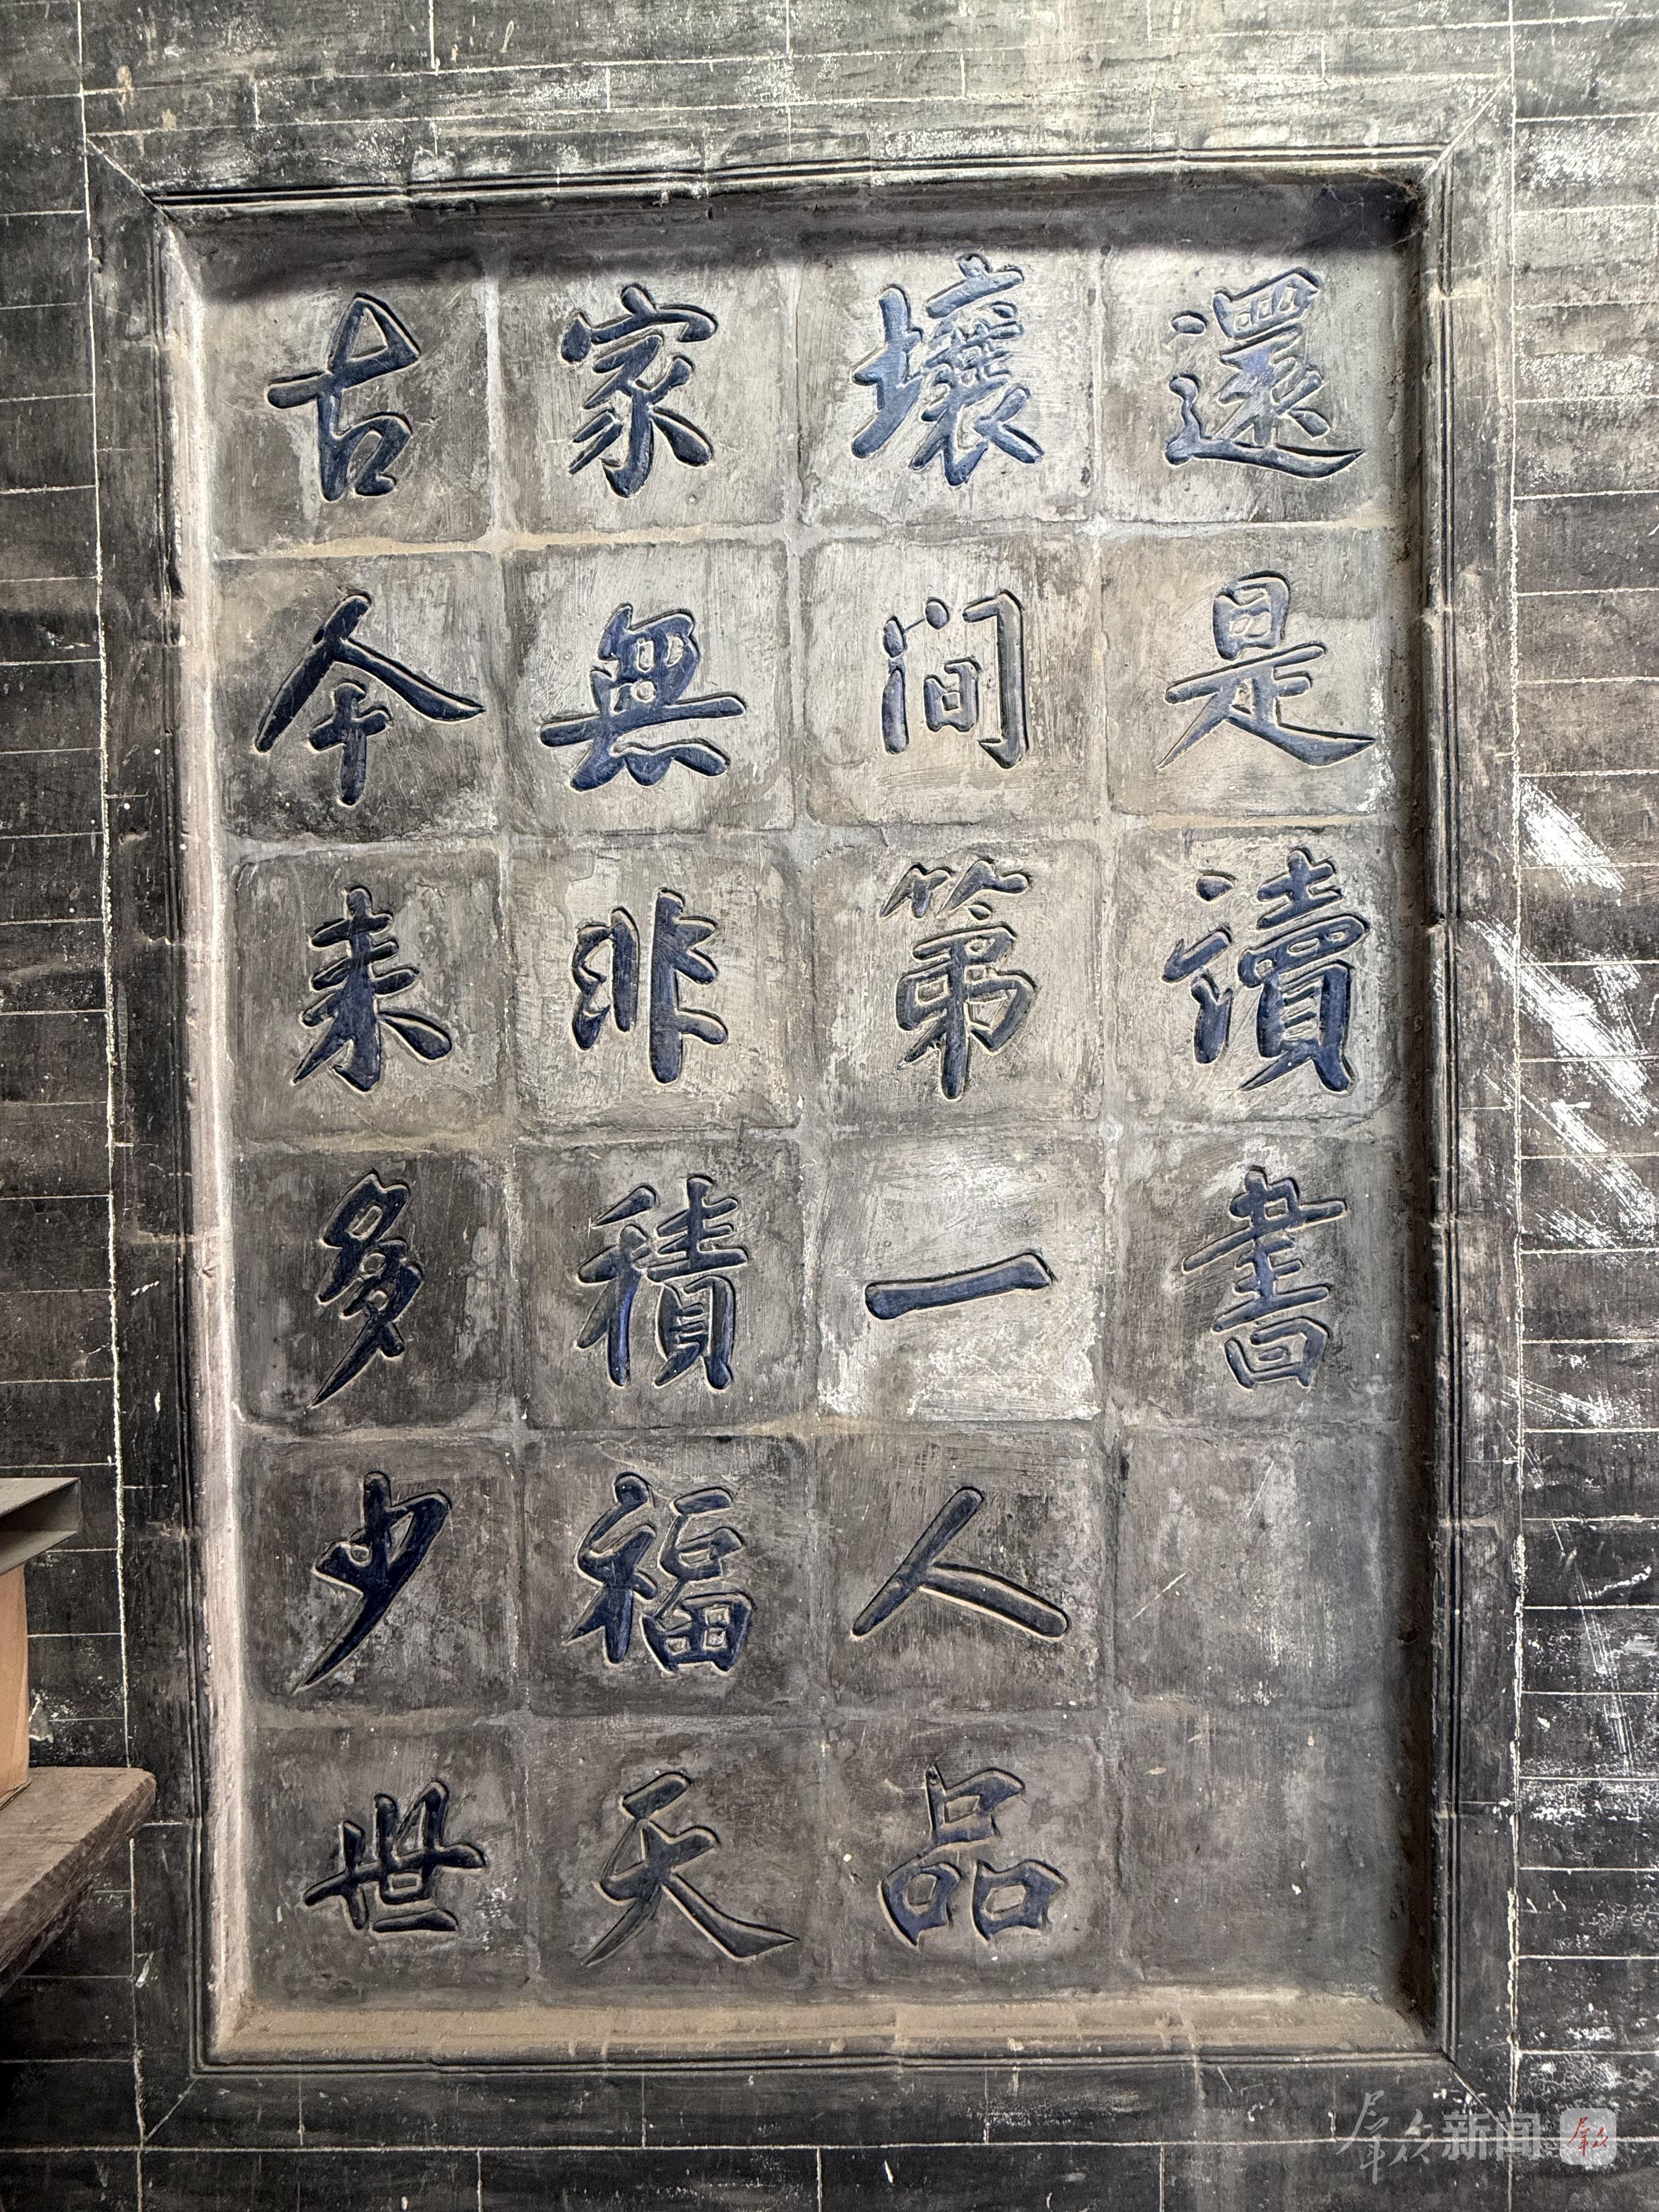 古今来多少世
家無非積福天
壤間第一人品
還是讀書
群众新闻
群众